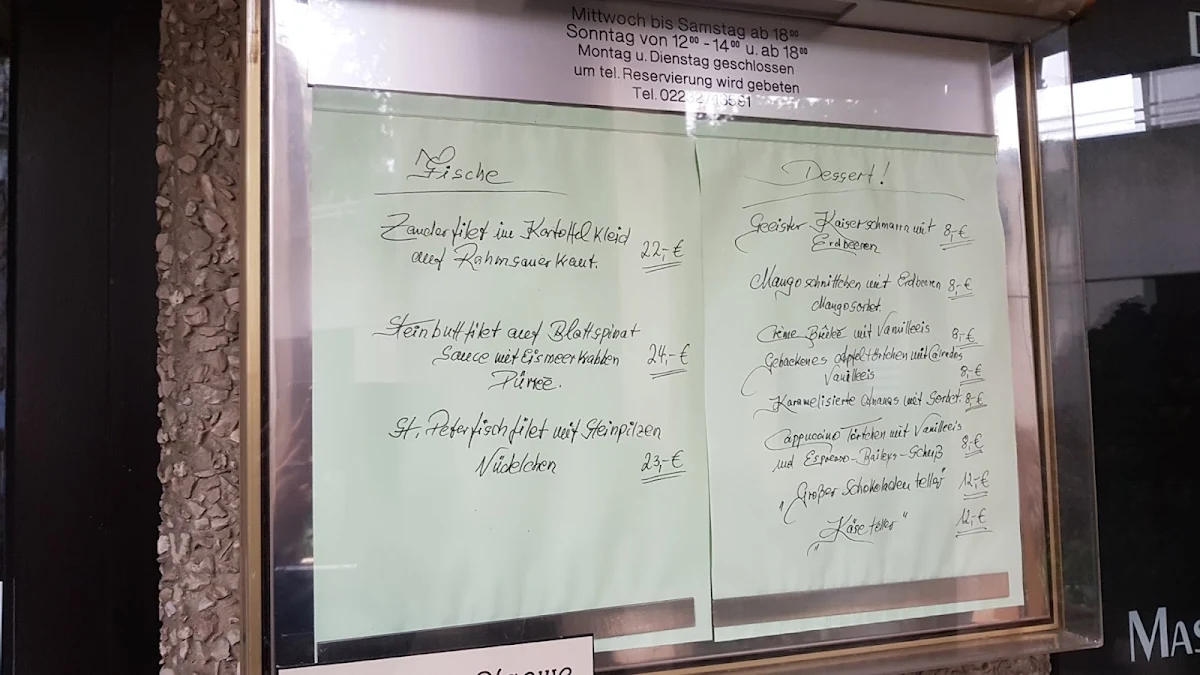 Mittwoch bis Samstag ab 18⁰⁰
Sonntag von 12⁰⁰ - 14⁰⁰ u. ab 18⁰⁰
Montag u. Dienstag geschlossen
um tel. Reservierung wird gebeten
Tel.
Fische
Zanderfilet im Kartoffelkleid
auf Rahmsauerkraut. 22,-€
Steinbuttfilet auf Blattspinat
Sauce mit Eismeerkrabben 24,-€
Pürree.
St. Peterfischfilet mit Steinpilzen
Nüdelchen 23,-€
Dessert!
Geeister Kaiserschmarrn mit 8,-€
Erdbeeren
Mangoschnittchen mit Erdbeeren 8,-€
Mangosorbet.
Crème Brûlée mit Vanilleeis 8,-€
Gebackenes Apfeltörtchen mit Calvados
Vanilleeis 8,-€
Karamelisierte Ananas mit Sorbet. 8,-€
Cappuccino Törtchen mit Vanilleeis
und Espresso-Baileys-Schuß 8,-€
"Großer Schokoladenteller" 12,-€
"Käseteller" 12,-€
MAS